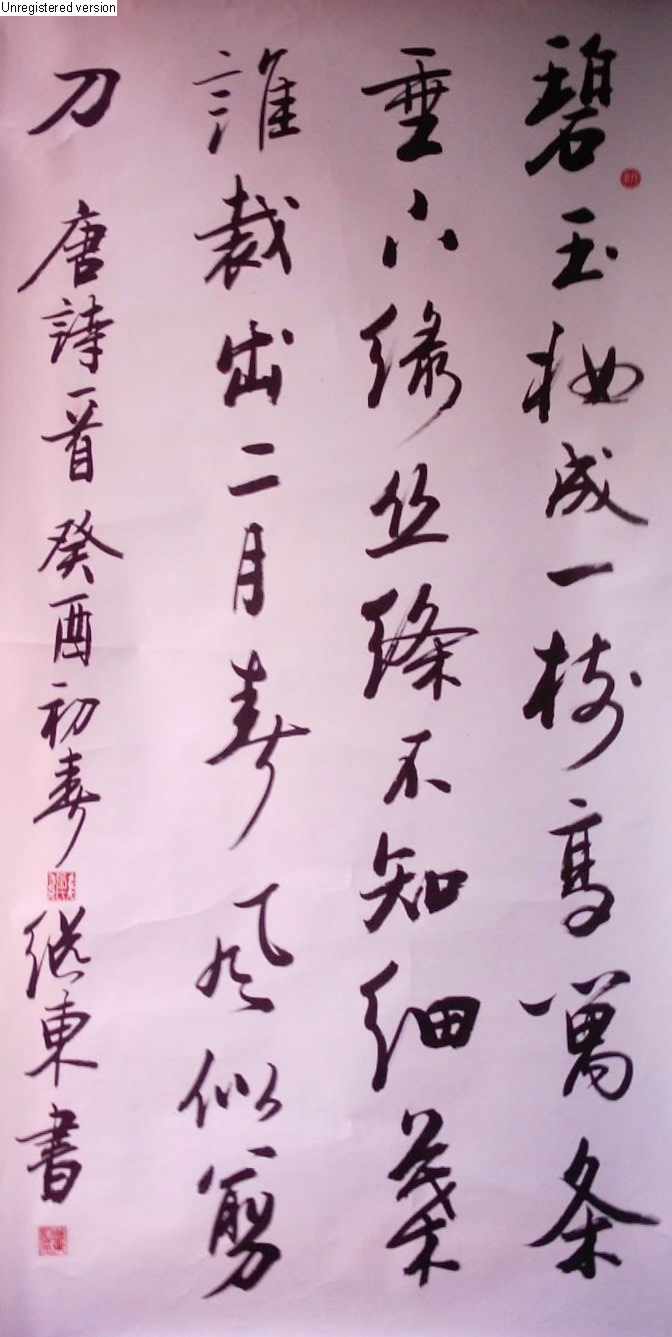 Unregistered version
碧玉妆成一樹高萬条
垂下绿丝絛不知细葉
誰裁出二月春风似剪
刀 唐詩一首 癸酉初春 继東書